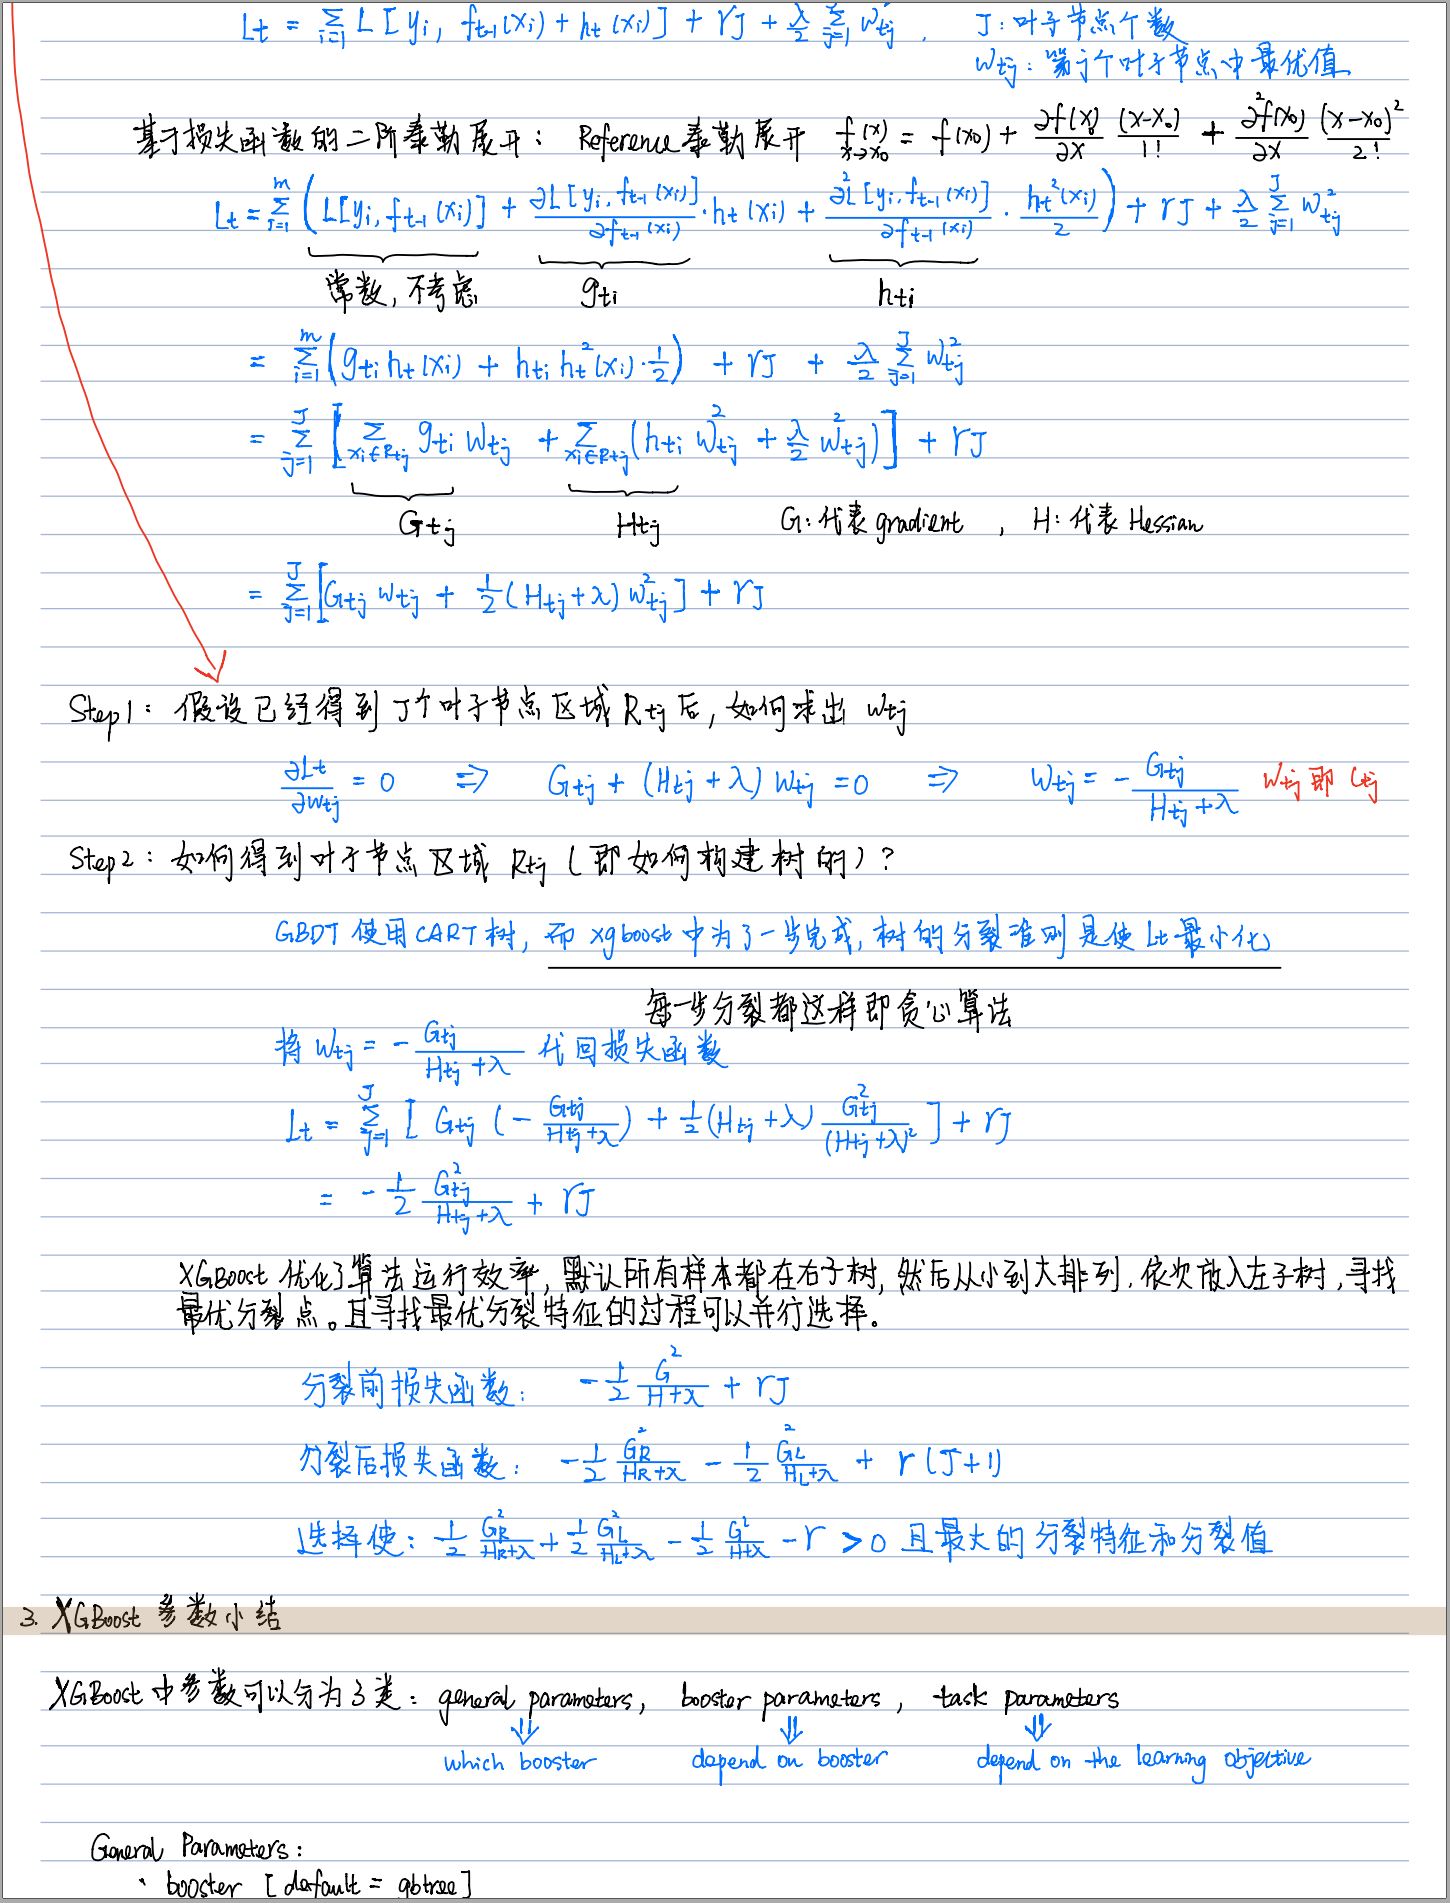 Lt = Σ_{i=1} L[yi, f_{t-1}(xi) + ht(xi)] + γJ + λ/2 Σ_{j=1} w²tj . J:叶子节点个数
wtj:第j个叶子节点中最优值
基于损失函数的二阶泰勒展开: Reference 泰勒展开 f(x)_{x→x0} = f(x0) + ∂f(x0)/∂x (x-x0)/1! + ∂²f(x0)/∂x (x-x0)²/2!
Lt = Σ_{i=1}^{m} ( L[yi, f_{t-1}(xi)] + ∂L[yi, f_{t-1}(xi)]/∂f_{t-1}(xi) · ht(xi) + ∂²L[yi, f_{t-1}(xi)]/∂f_{t-1}(xi) · ht²(xi)/2 ) + γJ + λ/2 Σ_{j=1}^{J} w²tj
常数,不考虑 gti hti
= Σ_{i=1}^{m} ( gti ht(xi) + hti ht²(xi)·1/2 ) + γJ + λ/2 Σ_{j=1}^{J} w²tj
= Σ_{j=1}^{J} [ Σ_{xi∈Rtj} gti wtj + Σ_{xi∈Rtj} (hti w²tj + λ/2 w²tj) ] + γJ
Gtj Htj G:代表gradient , H:代表Hessian
= Σ_{j=1}^{J} [Gtj wtj + 1/2 (Htj+λ) w²tj] + γJ
Step1: 假设已经得到J个叶子节点区域Rtj后,如何求出 wtj
∂Lt/∂wtj = 0 ⇒ Gtj + (Htj+λ) wtj = 0 ⇒ wtj = - Gtj/(Htj+λ) wtj 即 ctj
Step2: 如何得到叶子节点区域 Rtj (即如何构建树的)?
GBDT使用CART树,而xgboost中为了一步完成,树的分裂准则是使Lt最小化
每一步分裂都这样即贪心算法
将 wtj = - Gtj/(Htj+λ) 代回损失函数
Lt = Σ_{j=1}^{J} [ Gtj (- Gtj/(Htj+λ)) + 1/2 (Htj+λ) G²tj/(Htj+λ)² ] + γJ
= - 1/2 G²tj/(Htj+λ) + γJ
XGBoost优化了算法运行效率,默认所有样本都在右子树,然后从小到大排列,依次放入左子树,寻找
最优分裂点。且寻找最优分裂特征的过程可以并行选择。
分裂前损失函数: - 1/2 G²/(H+λ) + γJ
分裂后损失函数: - 1/2 GR²/(HR+λ) - 1/2 GL²/(HL+λ) + γ(J+1)
选择使: 1/2 GR²/(HR+λ) + 1/2 GL²/(HL+λ) - 1/2 G²/(H+λ) - γ > 0 且最大的分裂特征和分裂值
3. XGBoost 参数小结
XGBoost中参数可以分为3类: general parameters, booster parameters, task parameters
⇓ ⇓ ⇓
which booster depend on booster depend on the learning objective
General Parameters:
· booster [default = gbtree]